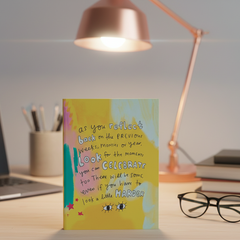 as you reflect
back on the previous
weeks, months or year
look for the moments
you can celebrate
for there will be some
even if you have to
just a little harder